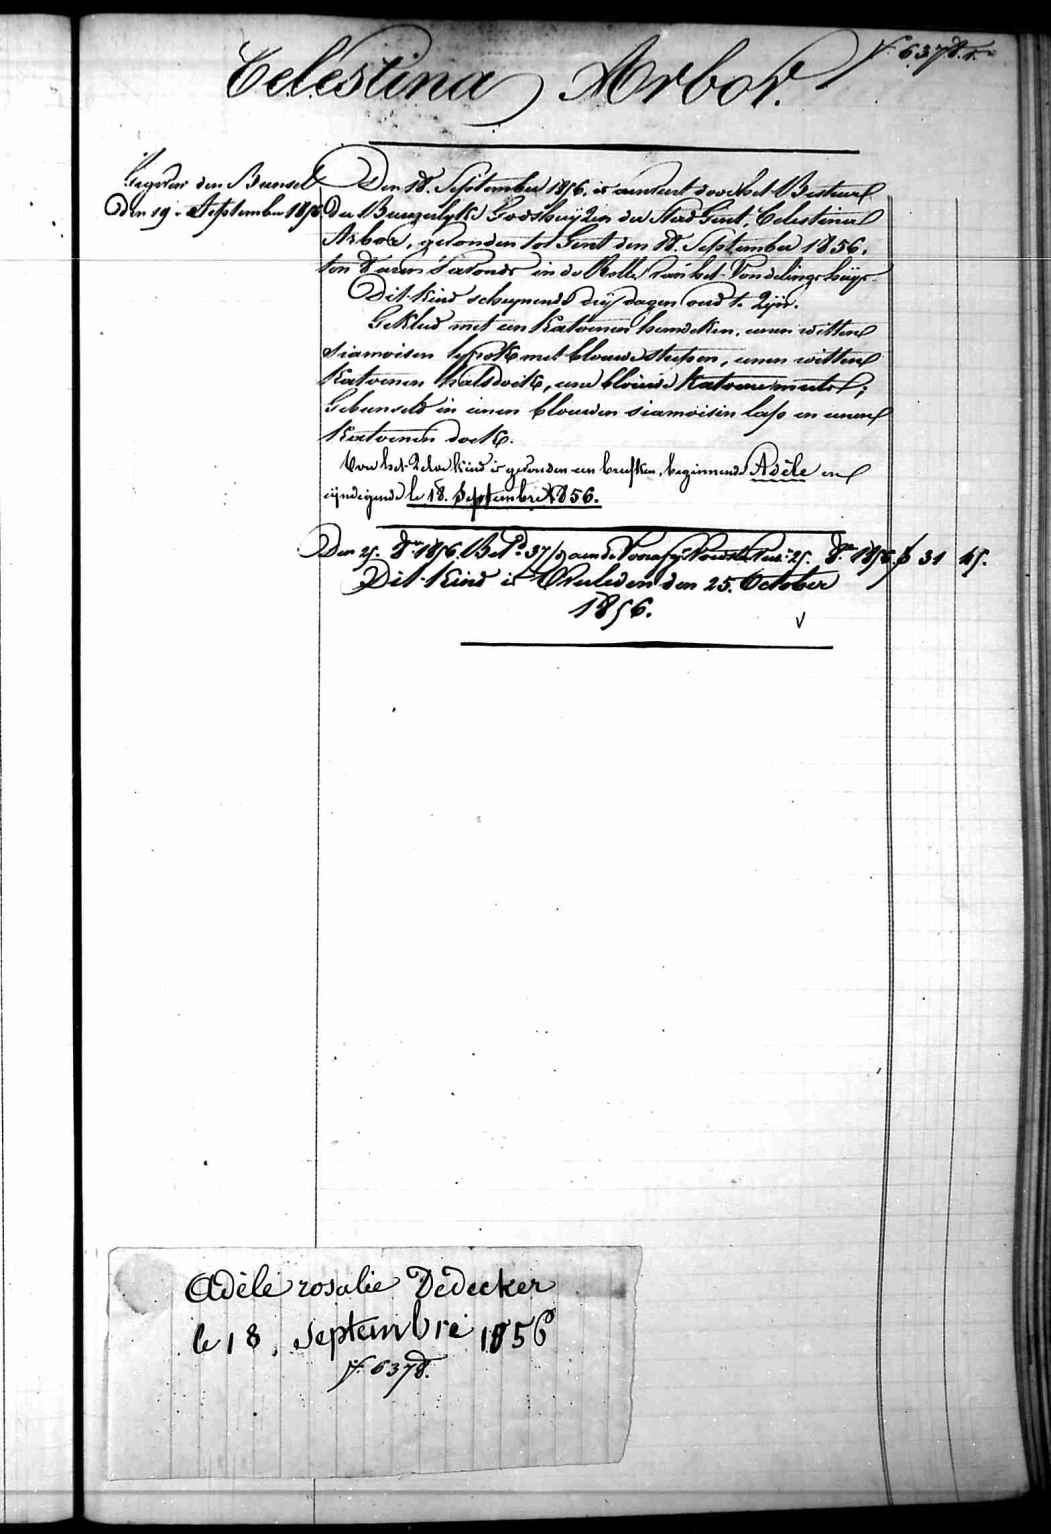 N.º 6378. r.
Celestina Arbor.
den Bunsel
den 19. September 1856
Den 18. September 1856. is aenveert door het Bestuur
der Burgerlyke Godshuyzen der Stad Gent, Celestina
Arbor, gevonden tot Gent den 18. September 1856,
ten 8 uren 's avonds in de Rolle van het Vondelingshuys.
Dit kind scheynende dry dagen oud te zyn.
Gekleed met een katoenen hemdeken, eenen witten
siamoisen met blauwe streepen, eenen witten
katoenen halsdoek, eene blauwe katoene muts;
Gebunseld in eenen blauwen siamoisin lap en eenen
katoenen doek.
Van het zelve kind is gevonden een briefken, beginnende Adèle en
eyndigende le 18. Septembre 1856.
Den 25. 8.bre 1856. Bet.d 37/9 aen de 25. 8.bre 1856. f 31 45.
Dit kind is Overleden den 25. October
1856.
Adèle rosalie Dedecker
le 18. septembre 1856
N.º 6378.